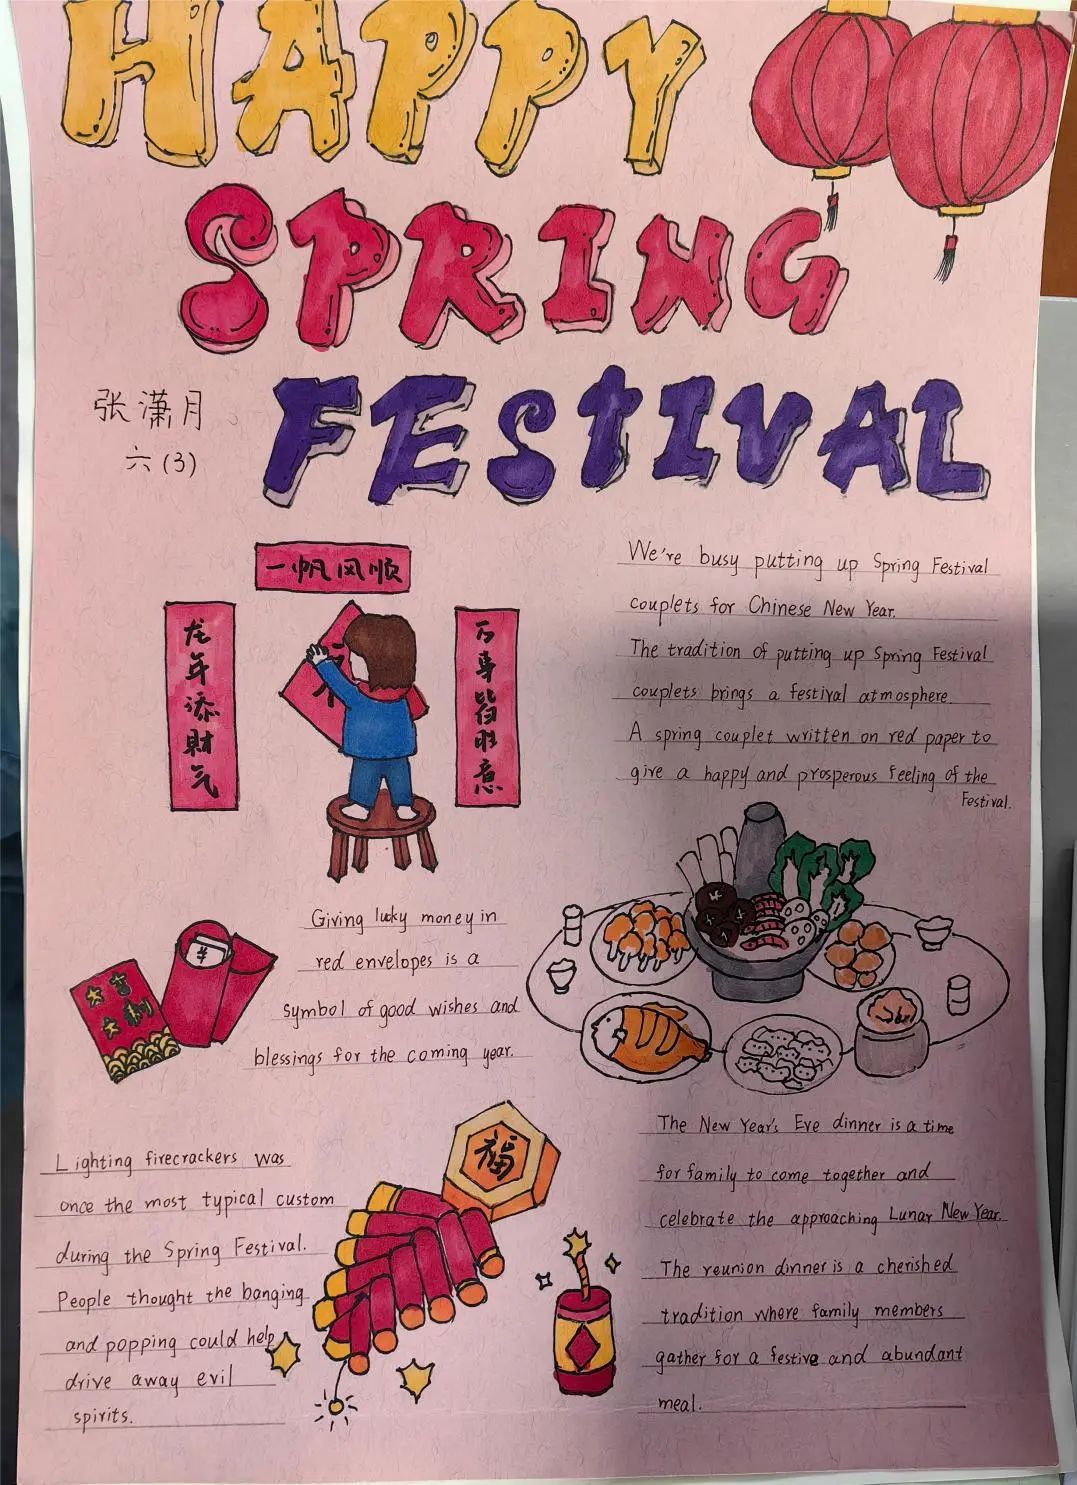 HAPPY
SPRING
FESTIVAL
张潇月
六(3)
一帆风顺
龙年添财气
万事皆胜意
福
We're busy putting up Spring Festival
couplets for Chinese New Year.
The tradition of putting up Spring Festival
couplets brings a festival atmosphere.
A spring couplet written on red paper to
give a happy and prosperous feeling of the
Festival.
Giving lucky money in
red envelopes is a
symbol of good wishes and
blessings for the coming year.
¥
大吉
大利
福
Lighting firecrackers was
once the most typical custom
during the Spring Festival.
People thought the banging
and popping could help
drive away evil
spirits.
The New Year's Eve dinner is a time
for family to come together and
celebrate the approaching Lunar New Year.
The reunion dinner is a cherished
tradition where family members
gather for a festive and abundant
meal.